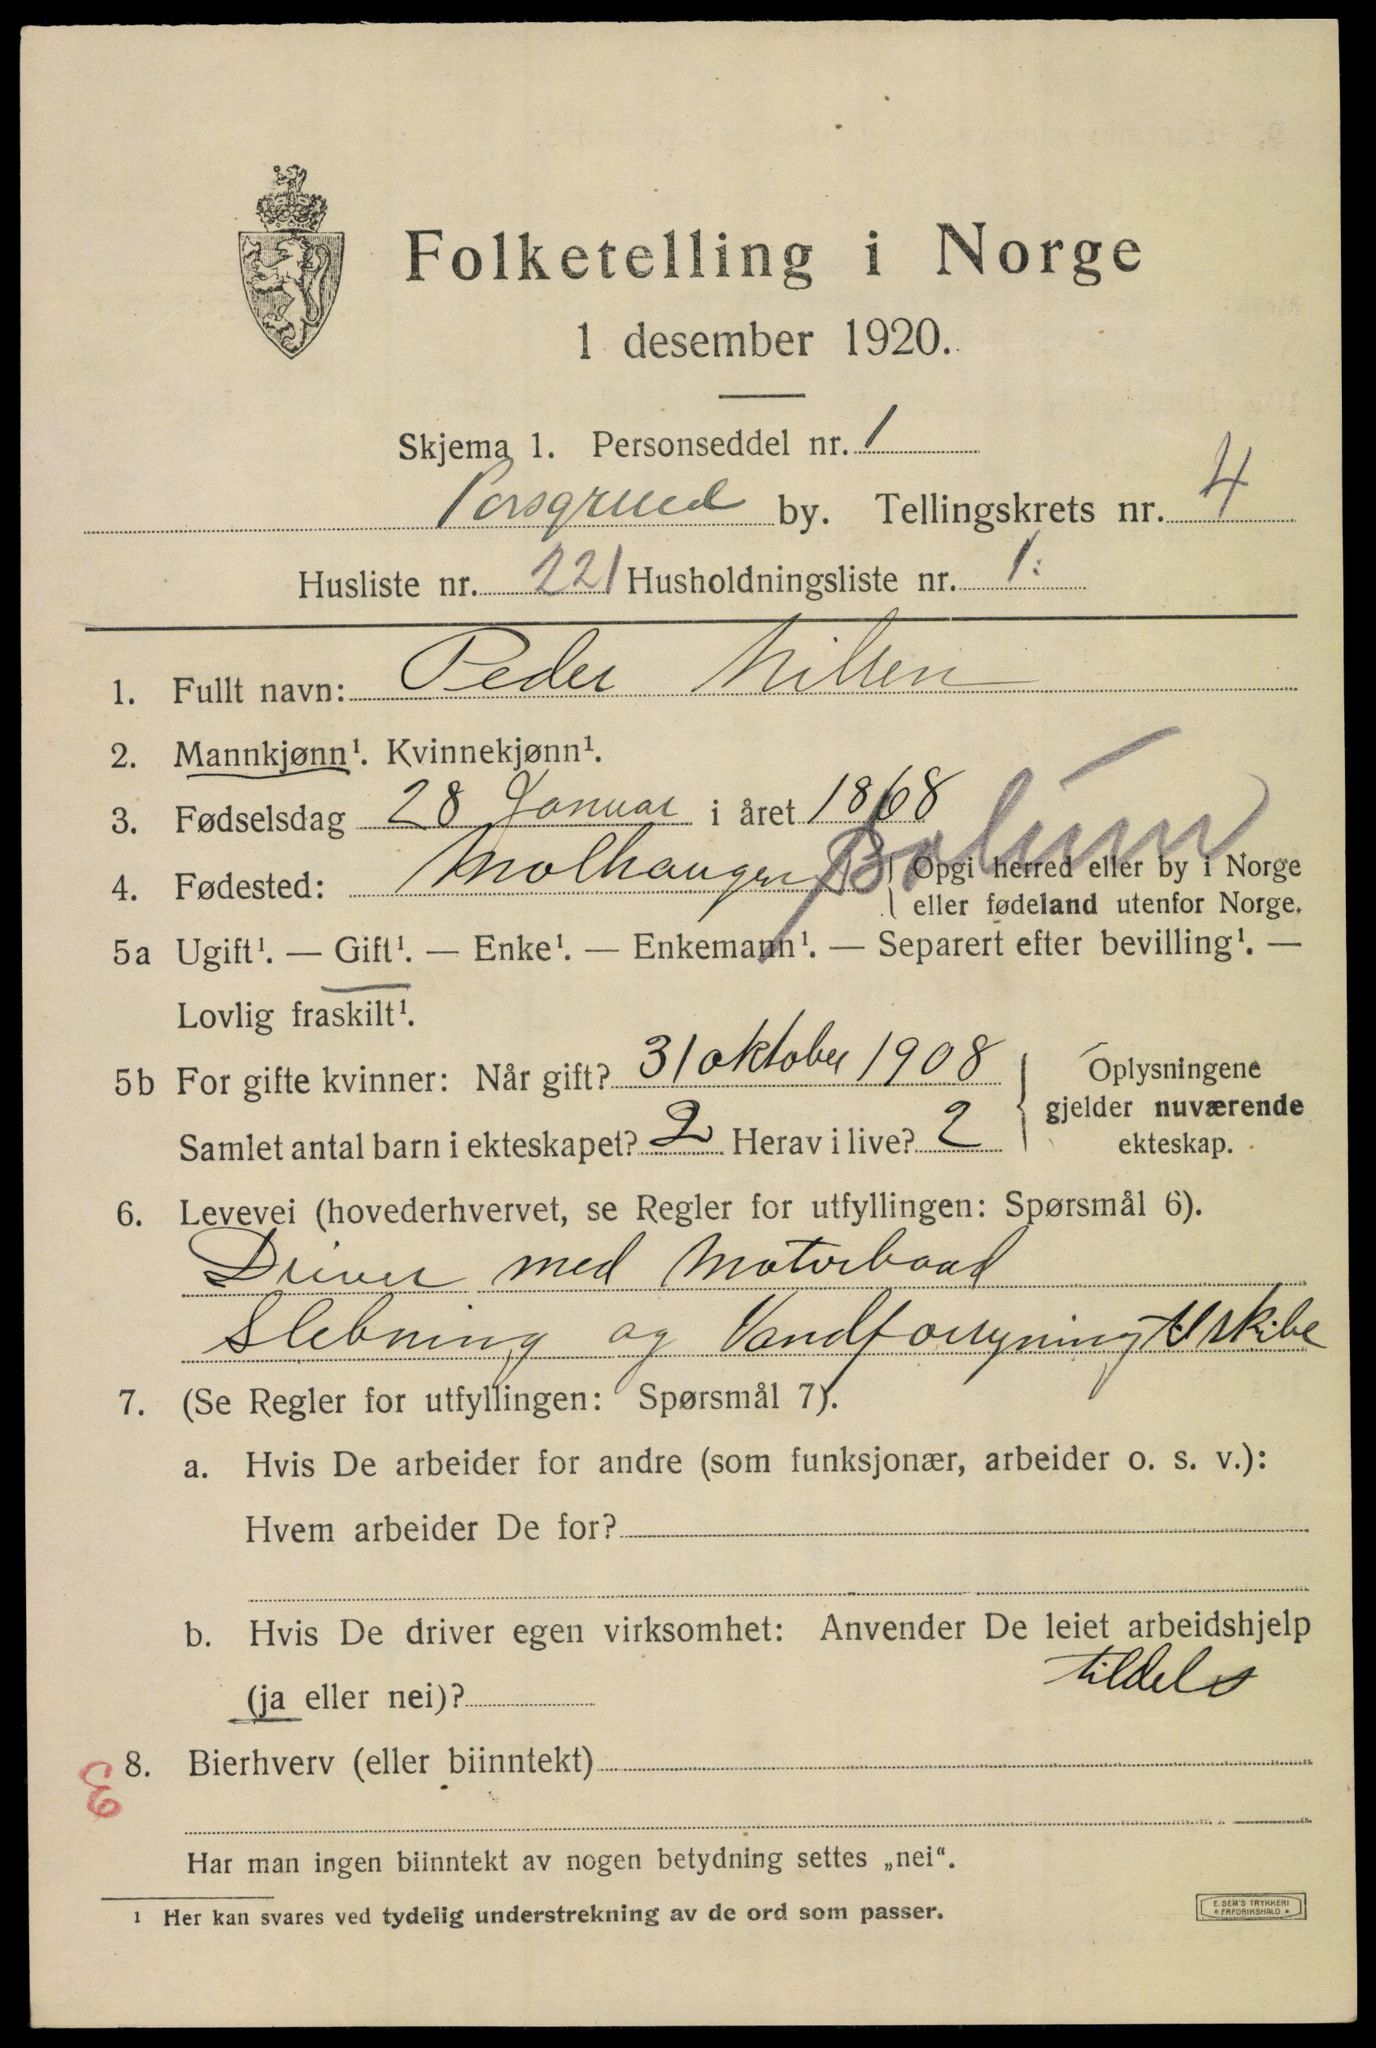 Folketelling i Norge
1 desember 1920.
Skjema 1. Personseddel nr. 1
Porsgrund by. Tellingskrets nr. 4
Husliste nr. 221 Husholdningsliste nr. 1.
1. Fullt navn: Peder Nilsen
2. Mannkjønn¹. Kvinnekjønn¹.
3. Fødselsdag 28 Januar i året 1868
4. Fødested: Molhaugen Opgi herred eller by i Norge
eller fødeland utenfor Norge.
5a Ugift¹. — Gift¹. — Enke¹. — Enkemann¹. — Separert efter bevilling¹. —
Lovlig fraskilt¹.
5b For gifte kvinner: Når gift? 31 oktober 1908
Samlet antal barn i ekteskapet? 2 Herav i live? 2
Oplysningene
gjelder nuværende
ekteskap.
6. Levevei (hovederhvervet, se Regler for utfyllingen: Spørsmål 6).
Driver med Motorbaad
Slebning og Vandforsyning til skibe
7. (Se Regler for utfyllingen: Spørsmål 7).
a. Hvis De arbeider for andre (som funksjonær, arbeider o. s. v.):
Hvem arbeider De for?
b. Hvis De driver egen virksomhet: Anvender De leiet arbeidshjelp
(ja eller nei)? tildels
8. Bierhverv (eller biinntekt)
Har man ingen biinntekt av nogen betydning settes „nei“.
¹ Her kan svares ved tydelig understrekning av de ord som passer.
E. SEM'S TRYKKERI
FREDRIKSHALD